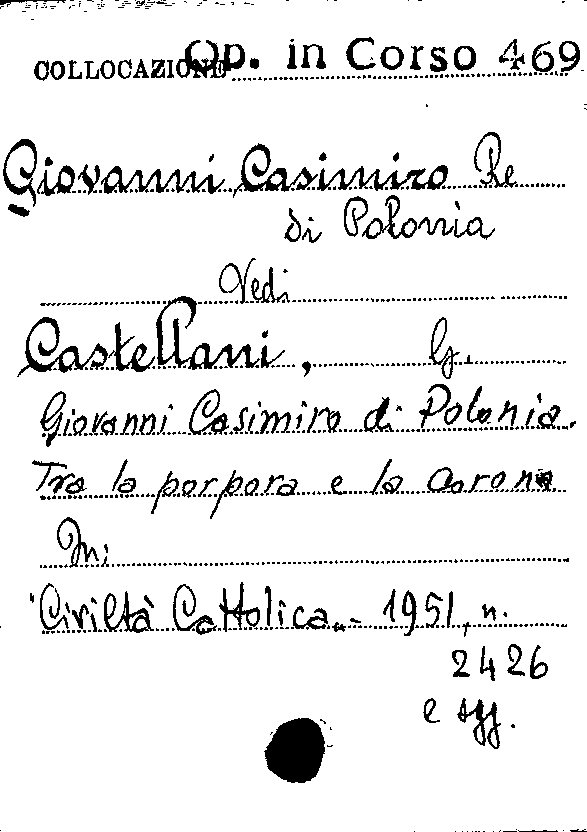 COLLOCAZIONE Op. in Corso 469
Giovanni Casimiro Re
di Polonia
Vedi
Castellani, G.
Giovanni Casimiro di Polonia.
Tra la porpora e la corona
In:
"Civiltà Cattolica" - 1951, n.
2426
e sgg.